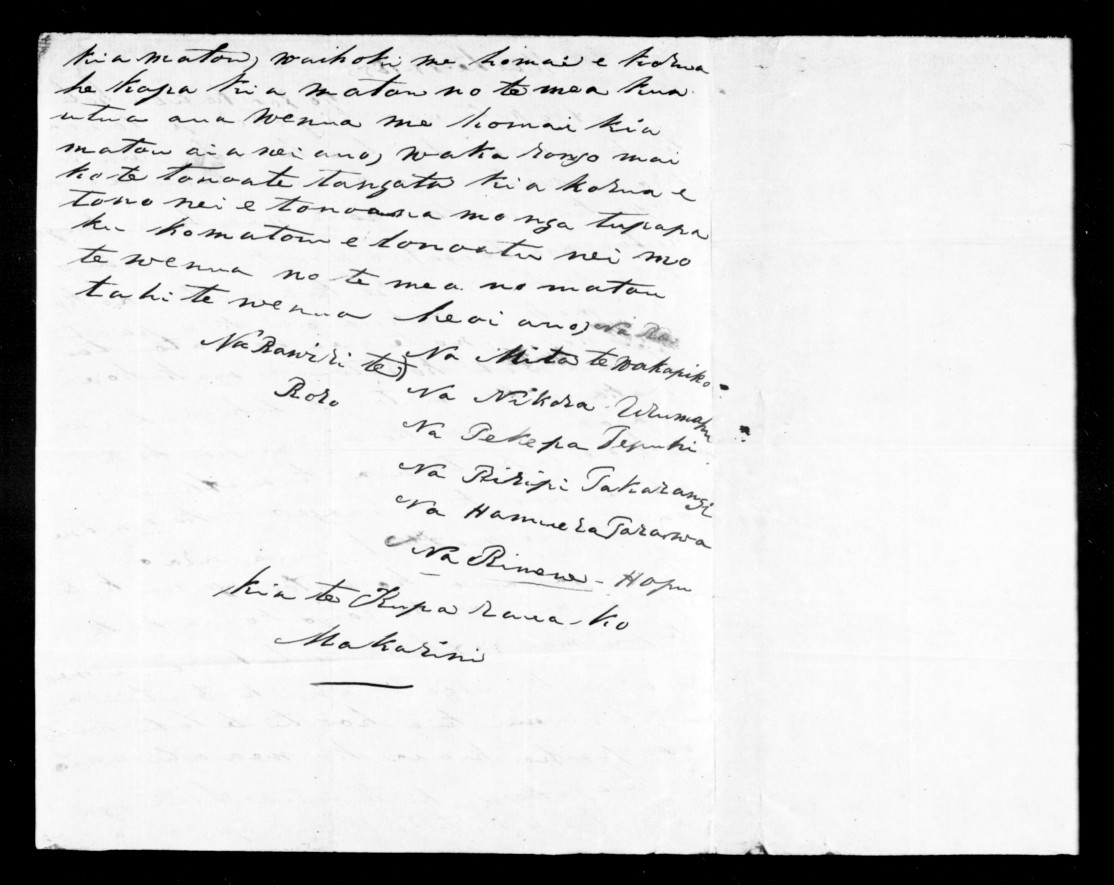 kia matou, waihoki me homai e korua
he kapa kia matou no te mea kua
utua aua wenua me homai kia
matou aia nei ano, waka rongo mai
ko te tonoa te tangata kia korua e
tono nei e tonoana mo nga tupapa
ku ko matou e tonoatu nei mo
te wenua no te mea no matou
tahi te wenua heoi ano, Na Ra
Na Rawiri te) Na Mita te wakapiko
Roro Na Nikora Urumahu
Na Pekepa
Na Piripi Takarangi
Na Hamuera Tarawa
Na Rinene - Hapu
kia te Kupa raua-ko
Makarini